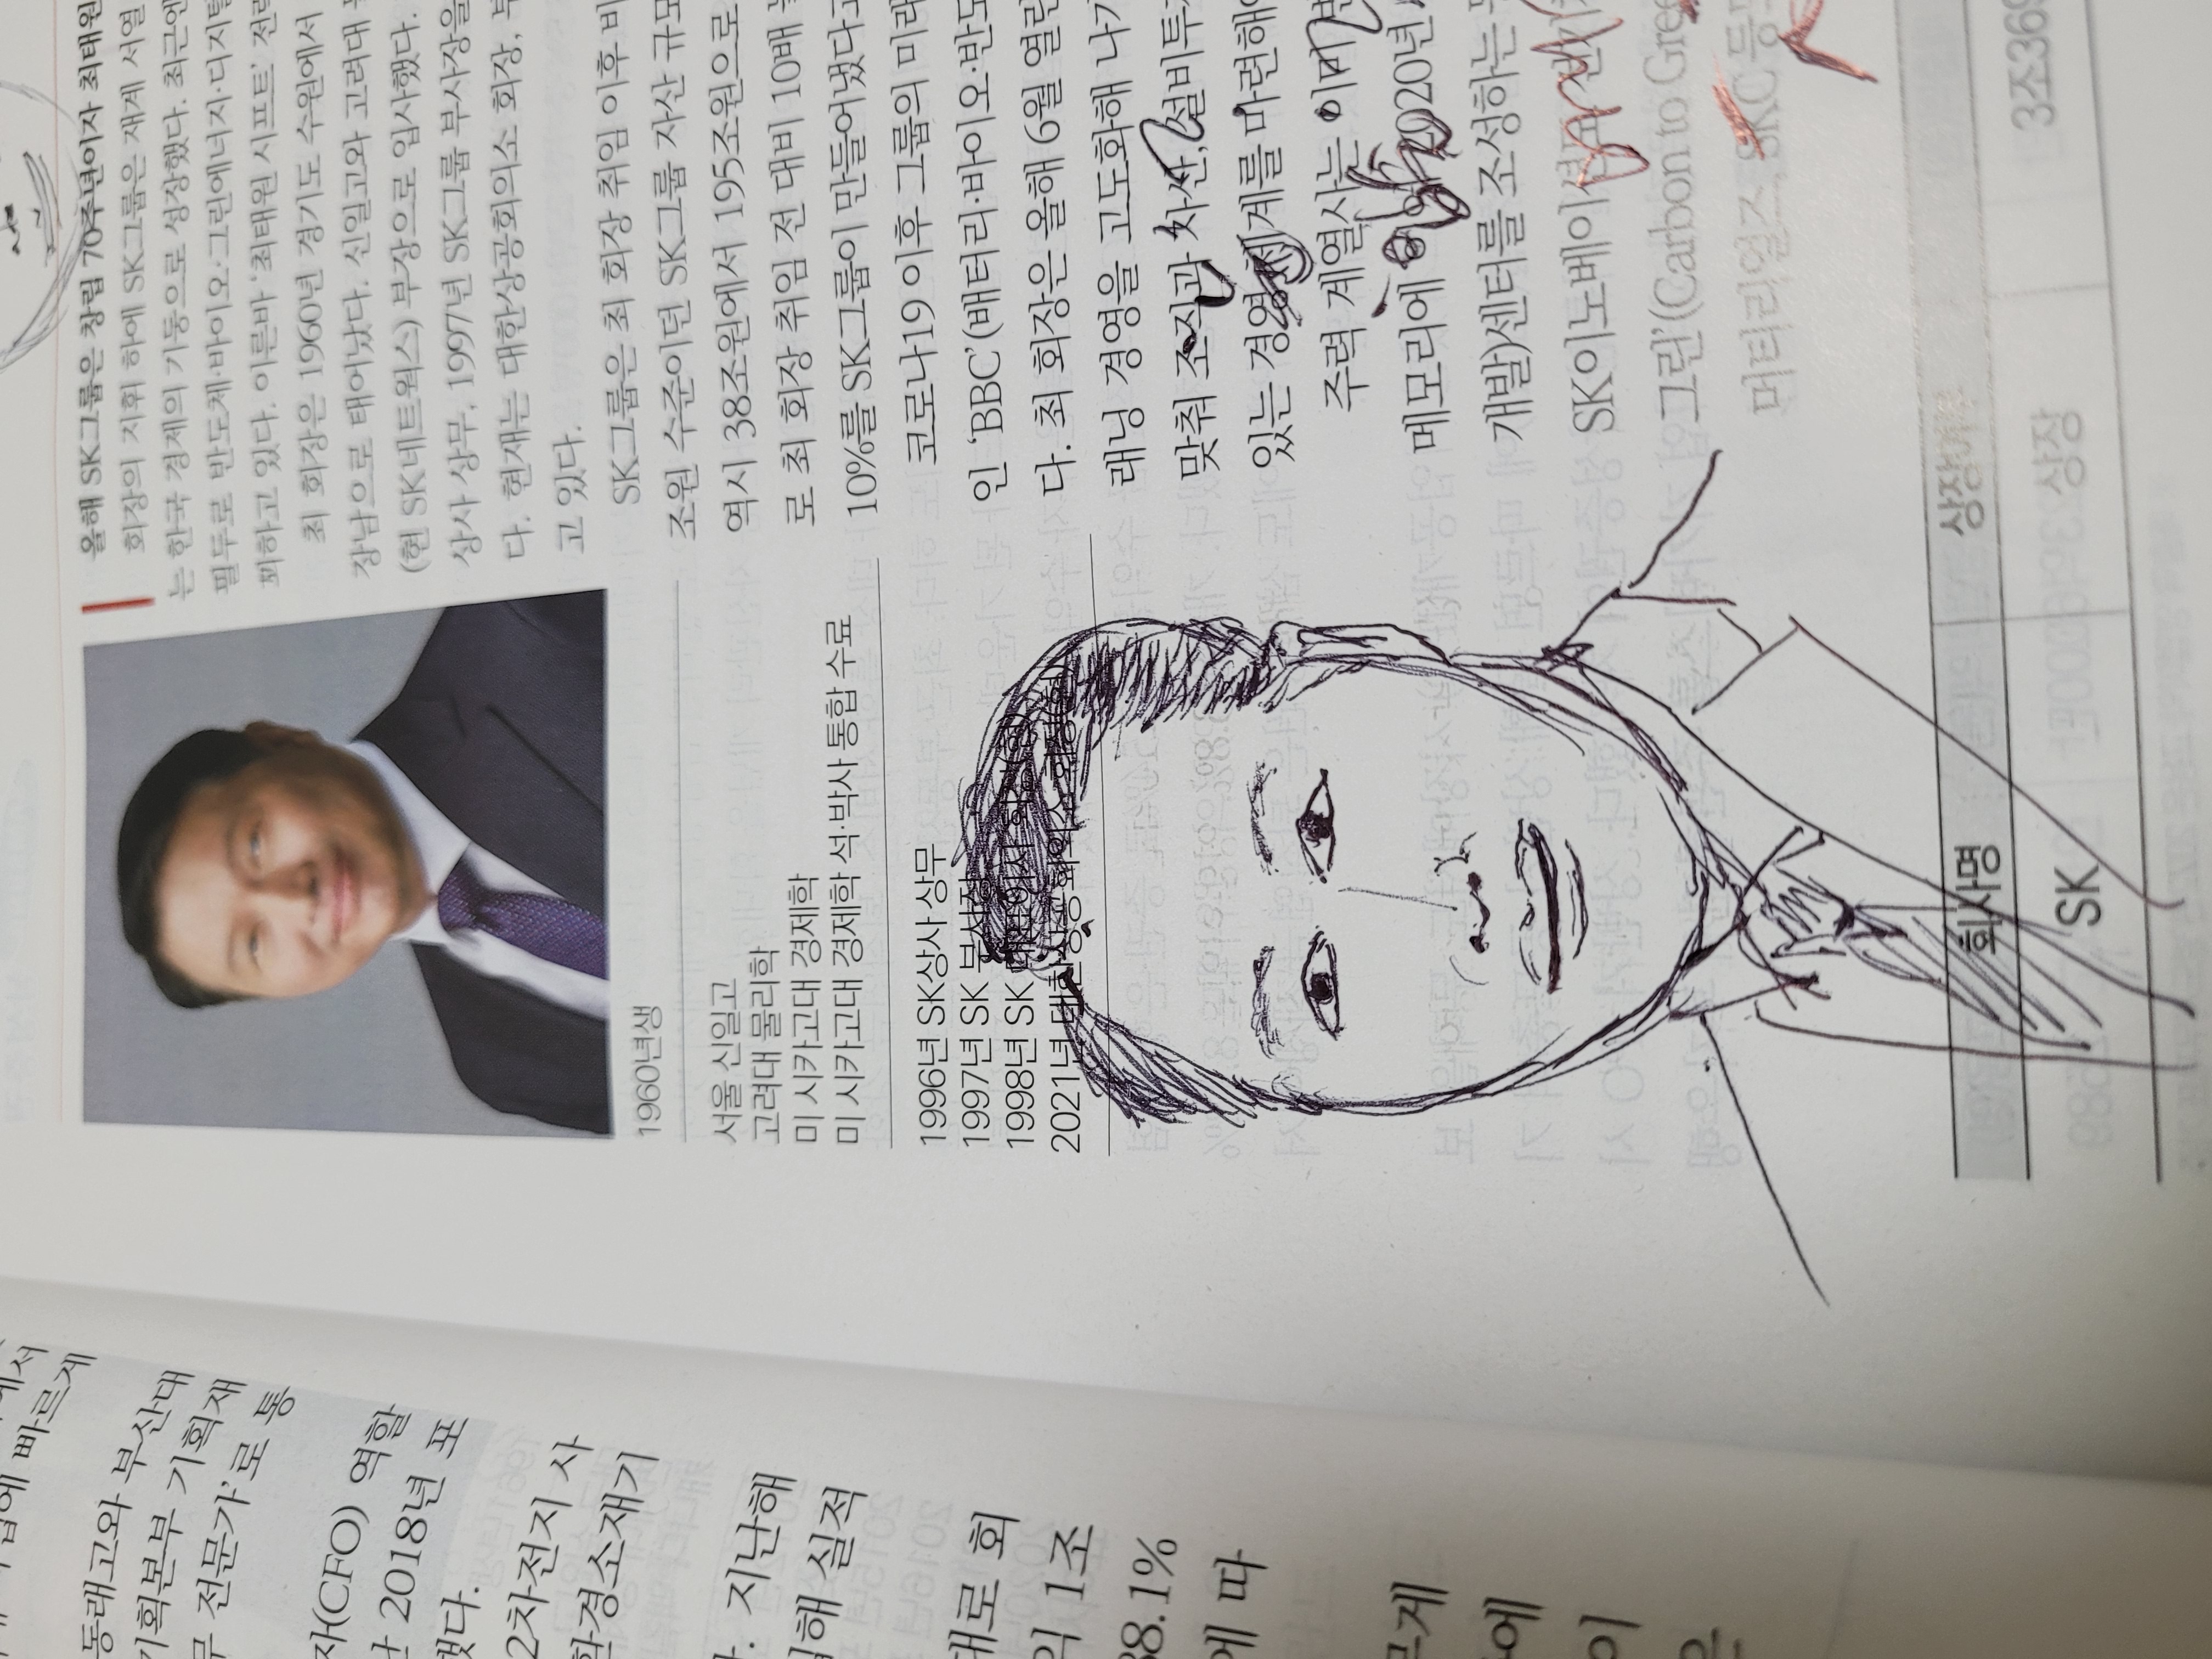 올해 SK그룹은 창립 70주년이자 최태원
회장의 지휘 하에 SK그룹은 재계 서열
는 한국 경제의 기둥으로 성장했다. 최근엔
필두로 반도체·바이오·그린에너지·디지털
꾀하고 있다. 이른바 '최태원 시프트' 전략
최 회장은 1960년 경기도 수원에서
장남으로 태어났다. 신일고와 고려대
(현 SK네트웍스) 부장으로 입사했다.
상사 상무, 1997년 SK그룹 부사장을
다. 현재는 대한상공회의소 회장,
고 있다.
SK그룹은 최 회장 취임 이후 비
조원 수준이던 SK그룹 자산 규모
역시 38조원에서 195조원으로
로 최 회장 취임 전 대비 10배
10%를 SK그룹이 만들어냈다고
코로나19 이후 그룹의 미래
인 'BBC'(배터리·바이오·반도
다. 최 회장은 올해 6월 열린
래닝 경영을 고도화해 나가
맞춰 조직과 자산, 설비투자
있는 경영체계를 마련해야
주력 계열사는 이미
메모리에 2020년
개발)센터를 조성하는
SK이노베이션
그린'(Carbon to Gree
메티리얼즈, SKC 등
1960년생
서울 신일고
고려대 물리학
미 시카고대 경제학
미 시카고대 경제학 석·박사 통합 수료
1996년 SK상사 상무
1997년 SK 부사장
1998년 SK 대표이사 회장(現)
2021년 대한상공회의소 회장(現)
회사명 상장여부
SK 상장 3조369
동래고와 부산대
기획본부 기획재
무 전문가'로 통
자(CFO) 역할
2018년 포
했다.
2차전지 사
환경소재기
지난해
실적
대로 회
익 1조
38.1%
에 따
르게